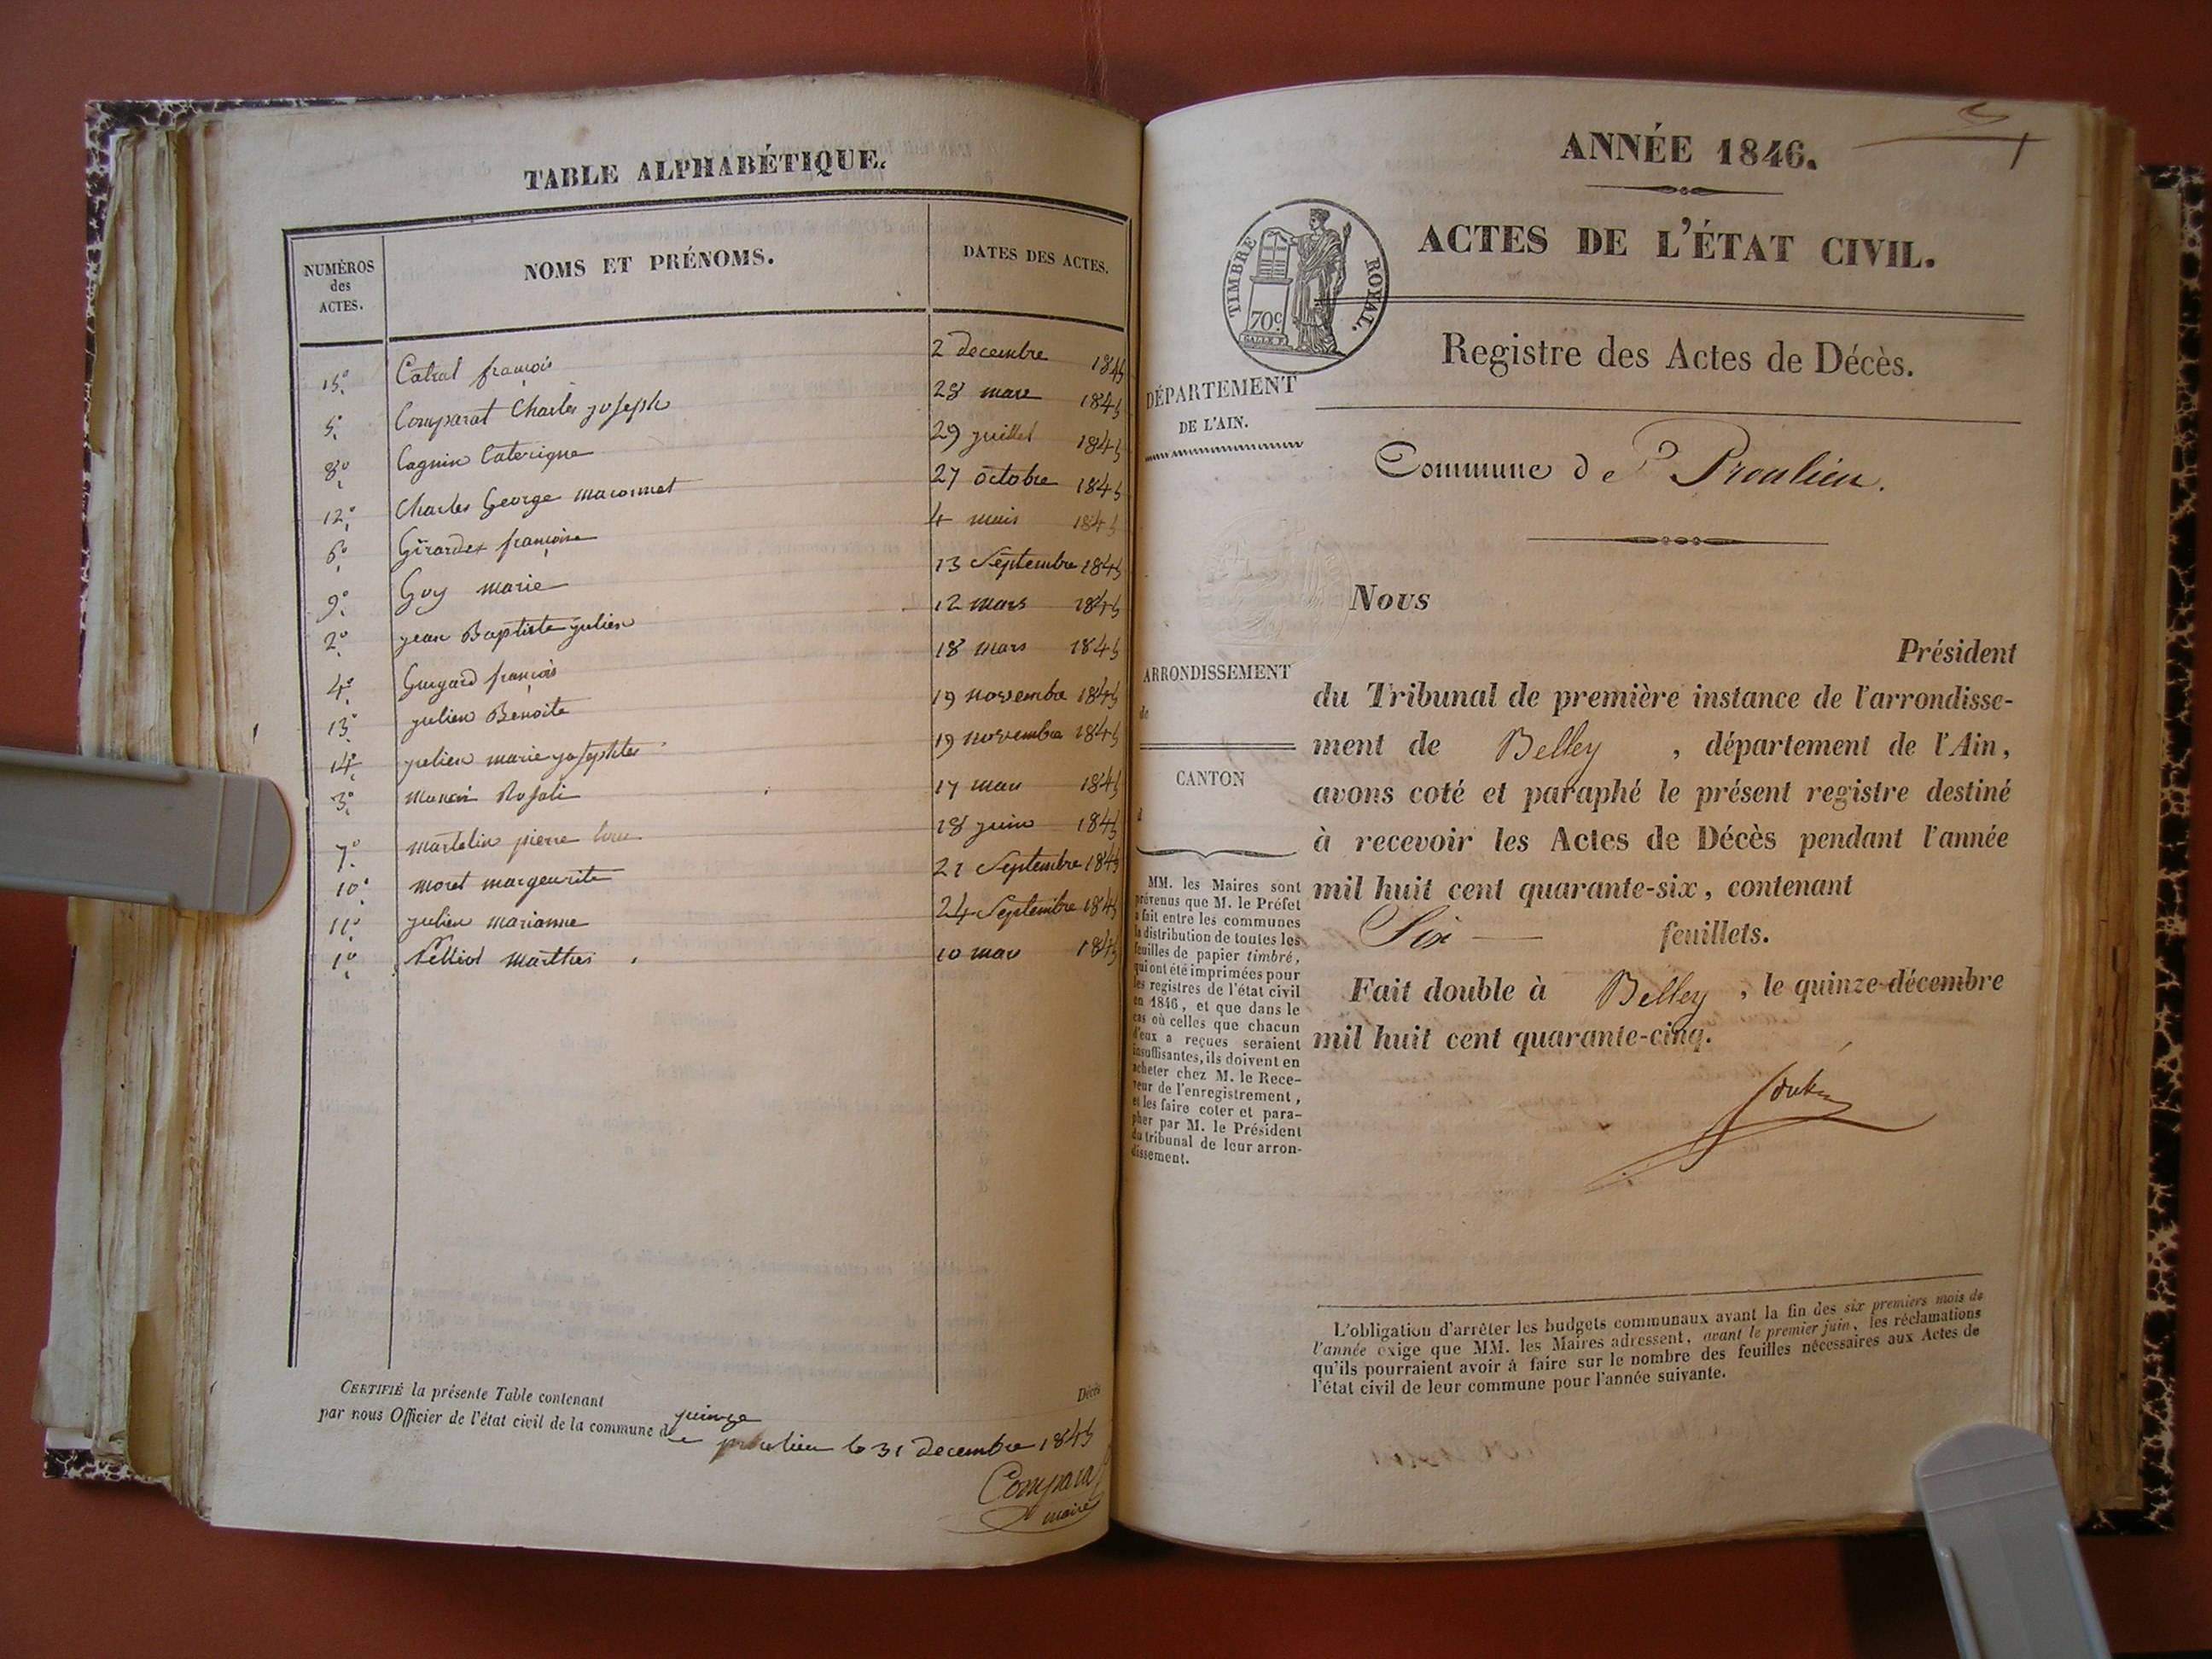 TABLE ALPHABÉTIQUE.
NUMÉROS
des
ACTES.
NOMS ET PRÉNOMS.
DATES DES ACTES.
15° Catral françois 2 decembre 1845
5° Comparat Charles joseph 28 mars 1845
8° Cagnin Caterigne 29 juillet 1845
12° Charles George maconnet 27 octobre 1845
6° Girardet françoise 4 mais 1845
9° Guy marie 13 Septembre 1845
2° jean Baptiste julien 12 mars 1845
4° Guygard françois 18 mars 1845
13° julien Benoite 19 novembre 1845
14° julien marie josephte 19 novembre 1845
3° Rosali 17 mars 1845
7° martelin pierre 18 juin 1845
10° moret margeurite 21 Septembre 1845
11° julien marianne 24 Septembre 1845
1° marthes 10 mars 1845
CERTIFIÉ la présente Table contenant quinze Décès
par nous Officier de l'état civil de la commune de proulieu le 31 decembre 1845
Comparat
maire
ANNÉE 1846.
ACTES DE L'ÉTAT CIVIL.
TIMBRE ROYAL.
70c
Registre des Actes de Décès.
DÉPARTEMENT
DE L'AIN.
Commune de Proulieu.
ARRONDISSEMENT
de
CANTON
d
MM. les Maires sont
prévenus que M. le Préfet
a fait entre les communes
la distribution de toutes les
feuilles de papier timbré,
qui ont été imprimées pour
les registres de l'état civil
en 1846, et que dans le
cas où celles que chacun
d'eux a reçues seraient
insuffisantes, ils doivent en
acheter chez M. le Rece-
veur de l'enregistrement,
et les faire coter et para-
pher par M. le Président
du tribunal de leur arron-
dissement.
Nous
Président
du Tribunal de première instance de l'arrondisse-
ment de Belley , département de l'Ain,
avons coté et paraphé le présent registre destiné
à recevoir les Actes de Décès pendant l'année
mil huit cent quarante-six, contenant
Six feuillets.
Fait double à Belley , le quinze décembre
mil huit cent quarante-cinq.
L'obligation d'arrêter les budgets communaux avant la fin des six premiers mois de
l'année exige que MM. les Maires adressent, avant le premier juin, les réclamations
qu'ils pourraient avoir à faire sur le nombre des feuilles nécessaires aux Actes de
l'état civil de leur commune pour l'année suivante.